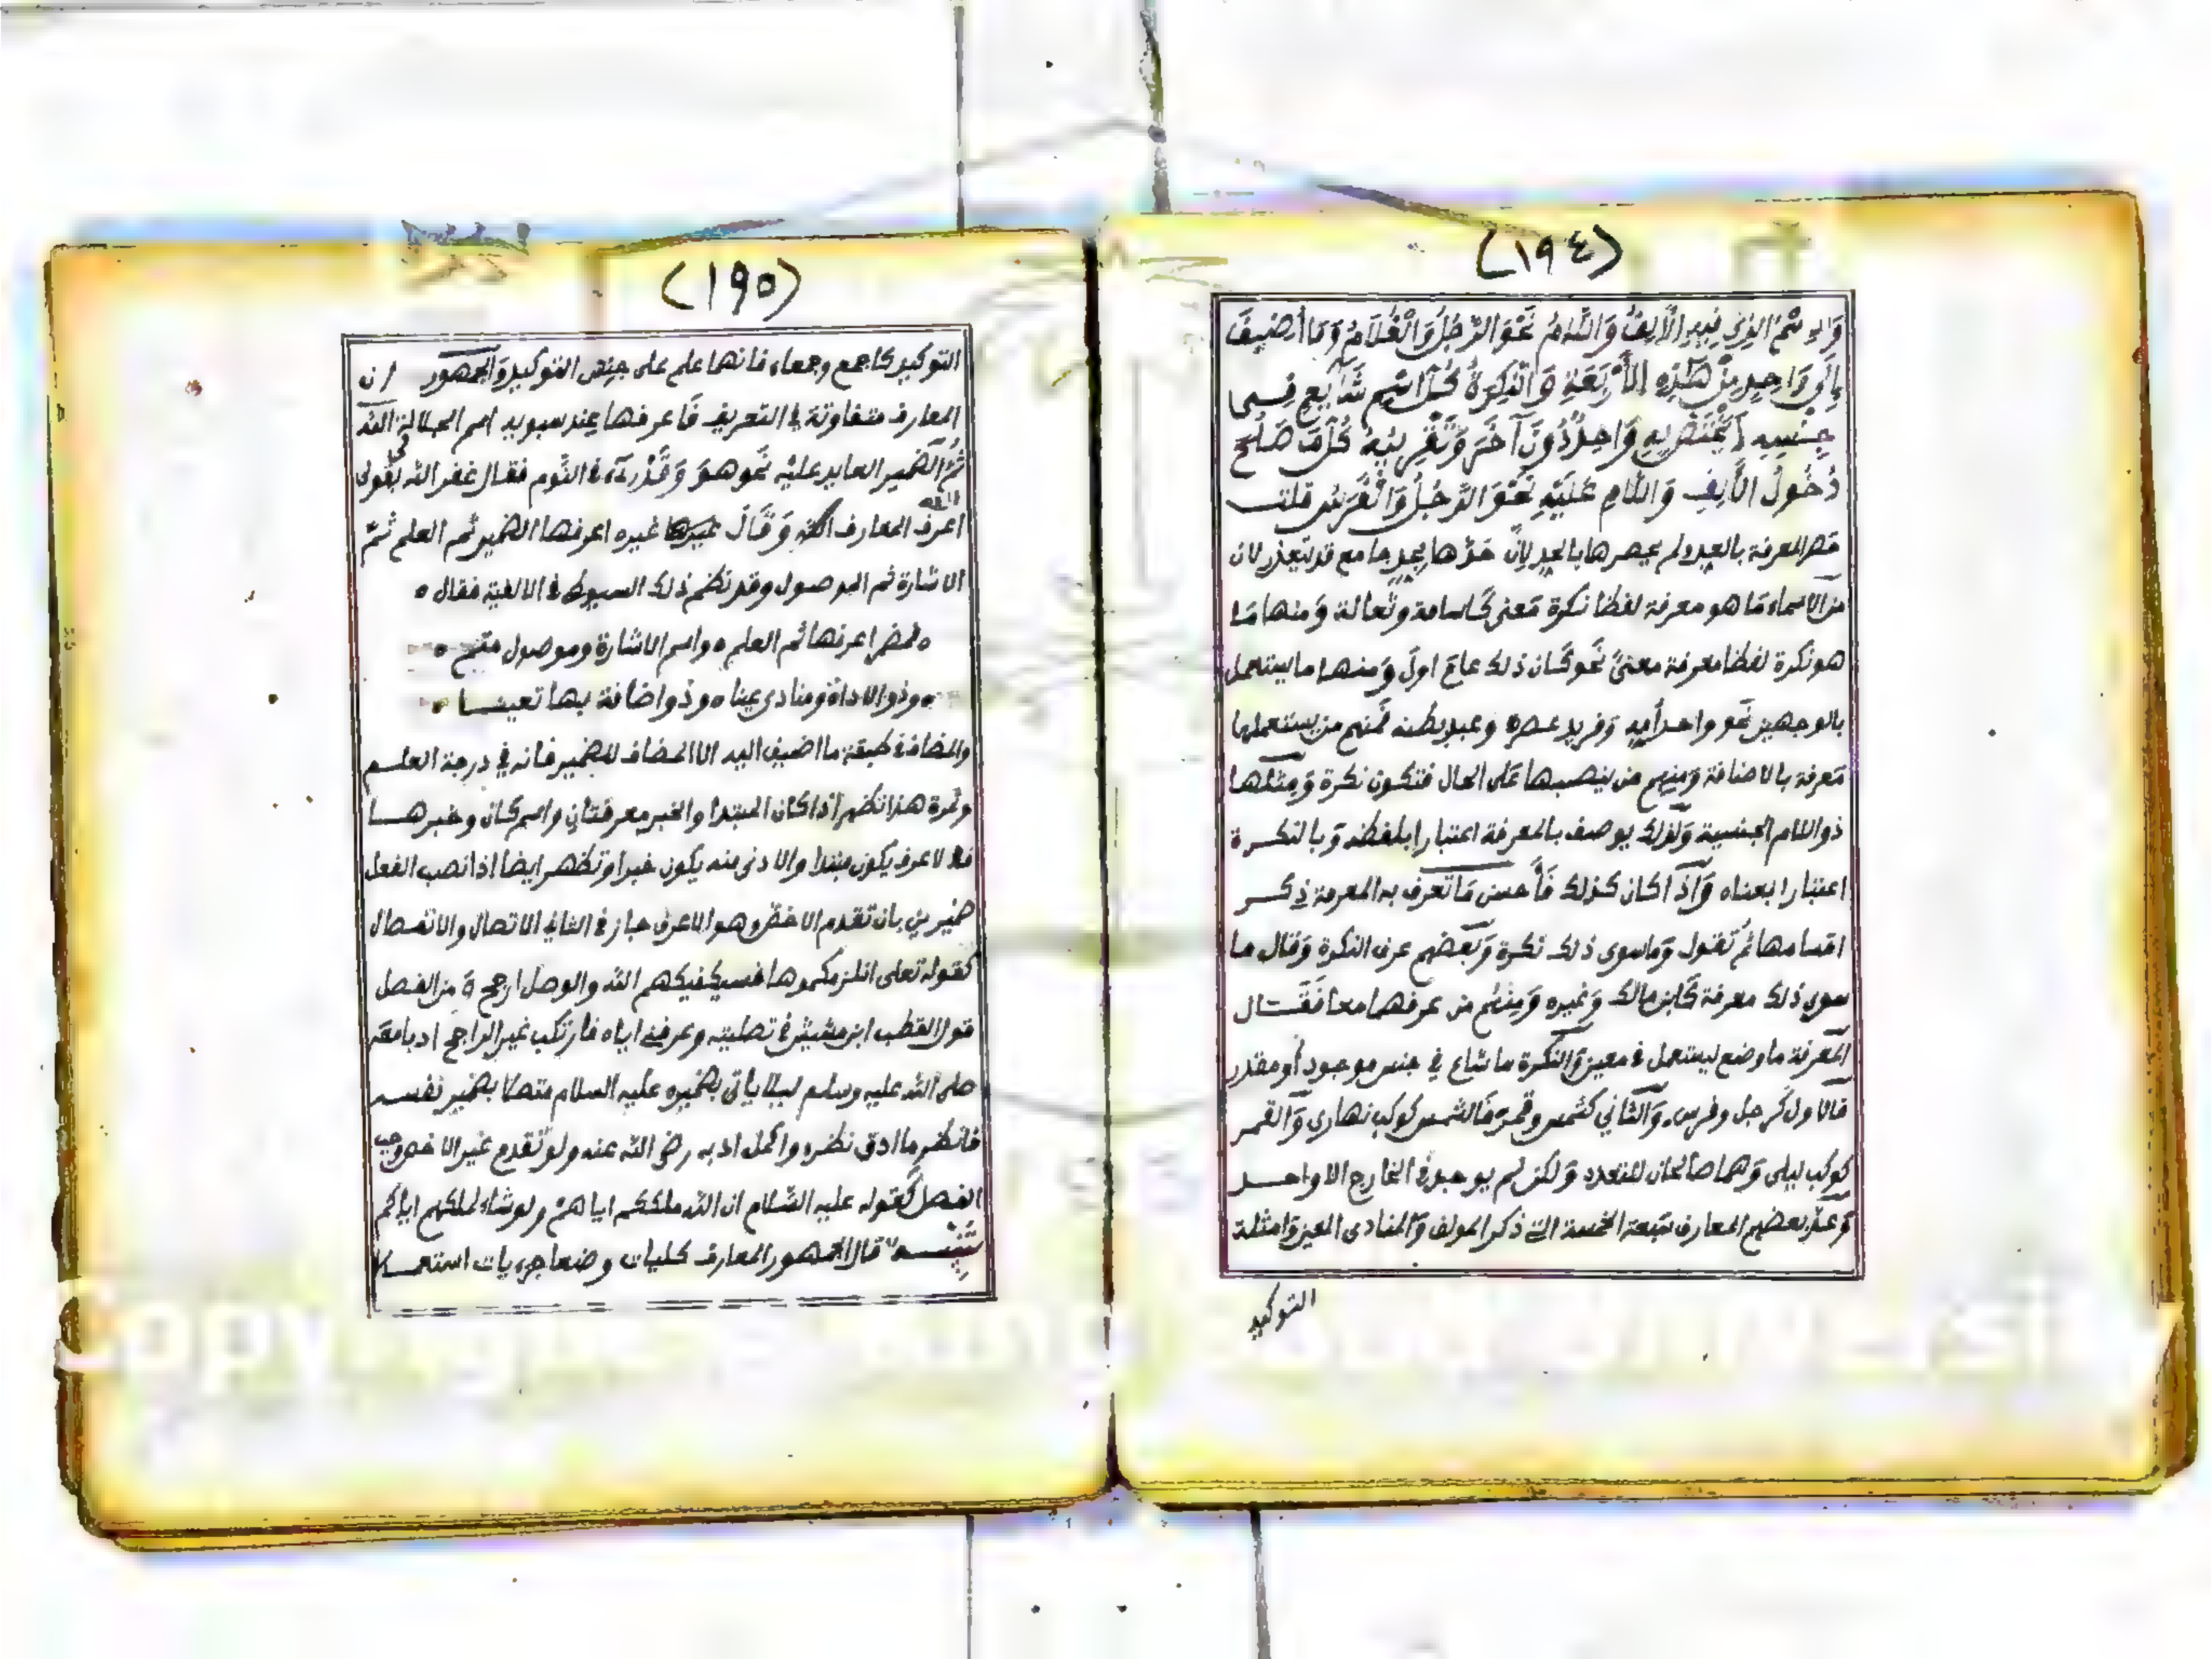 (١٩٤)
وَالاِسْمُ الذِي فِيهِ الْأَلِفُ وَاللَّامُ نَحْوَ الرَّجُلُ وَالْغُلَامُ وَمَا أُضِيفَ
إِلَى وَاحِدٍ مِنْ هَذِهِ الْأَرْبَعَةِ وَالنَّكِرَةُ كُلُّ اسْمٍ شَايِعٍ فِي
جِنْسِهِ لَا يَخْتَصُّ بِهِ وَاحِدٌ دُونَ آخَرَ وَتَقْرِيبُهُ كُلُّ مَا صَلُحَ
دُخُولُ الْأَلِفِ وَاللَّامِ عَلَيْهِ نَحْوَ الرَّجُلُ وَالْفَرَسُ قلت
حصر المعرفة بالعد ولم يحصرها بالحد لان حدها بحد جامع قد يتعذر لان
من الاسماء ما هو معرفة لفظا نكرة معنى كاسامة وثعالة ومنها ما
هو نكرة لفظا معرفة معنى نحو كان ذلك عام اول ومنها ما يستعمل
بالوجهين نحو واحد أمه وفريد عصره وعبد بطنه فمنهم من يستعملها
معرفة بالاضافة ومنهم من ينصبها على الحال فتكون نكرة ومثلها
ذو اللام الجنسية ولذلك يوصف بالمعرفة اعتبارا بلفظه وبالنكرة
اعتبارا بمعناه واذا كان كذلك فأحسن ما تعرف به المعرفة ذكر
اقسامها ثم تقول وما سوى ذلك نكرة وبعضهم عرف النكرة وقال ما
سوى ذلك معرفة كابن مالك وغيره ومنهم من عرفهما معا فقال
المعرفة ما وضع ليستعمل في معين والنكرة ما شاع في جنس موجود أو مقدر
فالاول كرجل وفرس والثاني كشمس وقمر فالشمس كوكب نهاري والقمر
كوكب ليلى وهما صالحان للتعدد ولكن لم يوجد في الخارج الا واحد
وعد بعضهم المعارف سبعة الخمسة التي ذكر المولف والمنادى المعين وامثلة
التوكيد
(١٩٥)
التوكيد كاجمع وجمعاء فانها علم على جنس التوكيد والجمهور ان
المعارف متفاوتة في التعريف فاعرفها عند سيبويه اسم الجلالة الله
ثم الضمير العايد عليه نحو هو وقد رءاه في النوم فقال غفر الله لى بقولى
اعرف المعارف الله وقال غيره اعرفها الضمير ثم العلم ثم
الاشارة ثم الموصول وقد نظم ذلك السيوطى في الالفية فقال ٥
٥ فمضمر اعرفها ثم العلم ٥ واسم الاشارة وموصول متم ٥
٥ وذو الاداة ومنادى عينا ٥ وذو اضافة بها تعينا ٥
والمضاف في طبقة ما اضيف اليه الا المضاف للضمير فانه في درجة العلم
وثمرة هذا تظهر اذا كان المبتدا والخبر معرفتان واسم كان وخبرها
فالاعرف يكون مبتدا والادنى منه يكون خبرا وتظهر ايضا اذا نصب الفعل
ضميرين بان تقدم الاخص وهو الاعرف جاز في الثاني الاتصال والانفصال
كقوله تعلى انلزمكموها فسيكفيكهم الله والوصل ارجح من الفصل
قول القطب ابن مشيش في تصليته وعرفني اياه فارتكب غير الراجح ادبا معه
صلى الله عليه وسلم ليلا ياتي بضميره عليه السلام متصلا بضمير نفسه
فانظر ما ادق نظره واكمل ادبه رضى الله عنه ولو تقدم غير الاخص وجب
الفصل كقوله عليه السلام ان الله ملككم اياهم ولو شاء لملكهم اياكم
تنبيه قال الجمهور المعارف كليات وضعا جزءيات استعمالا